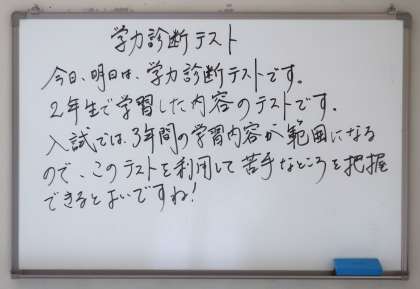 学力診断テスト
今日、明日は、学力診断テストです。
2年生で学習した内容のテストです。
入試では、3年間の学習内容が範囲になる
ので、このテストを利用して苦手なところを把握
できるとよいですね!